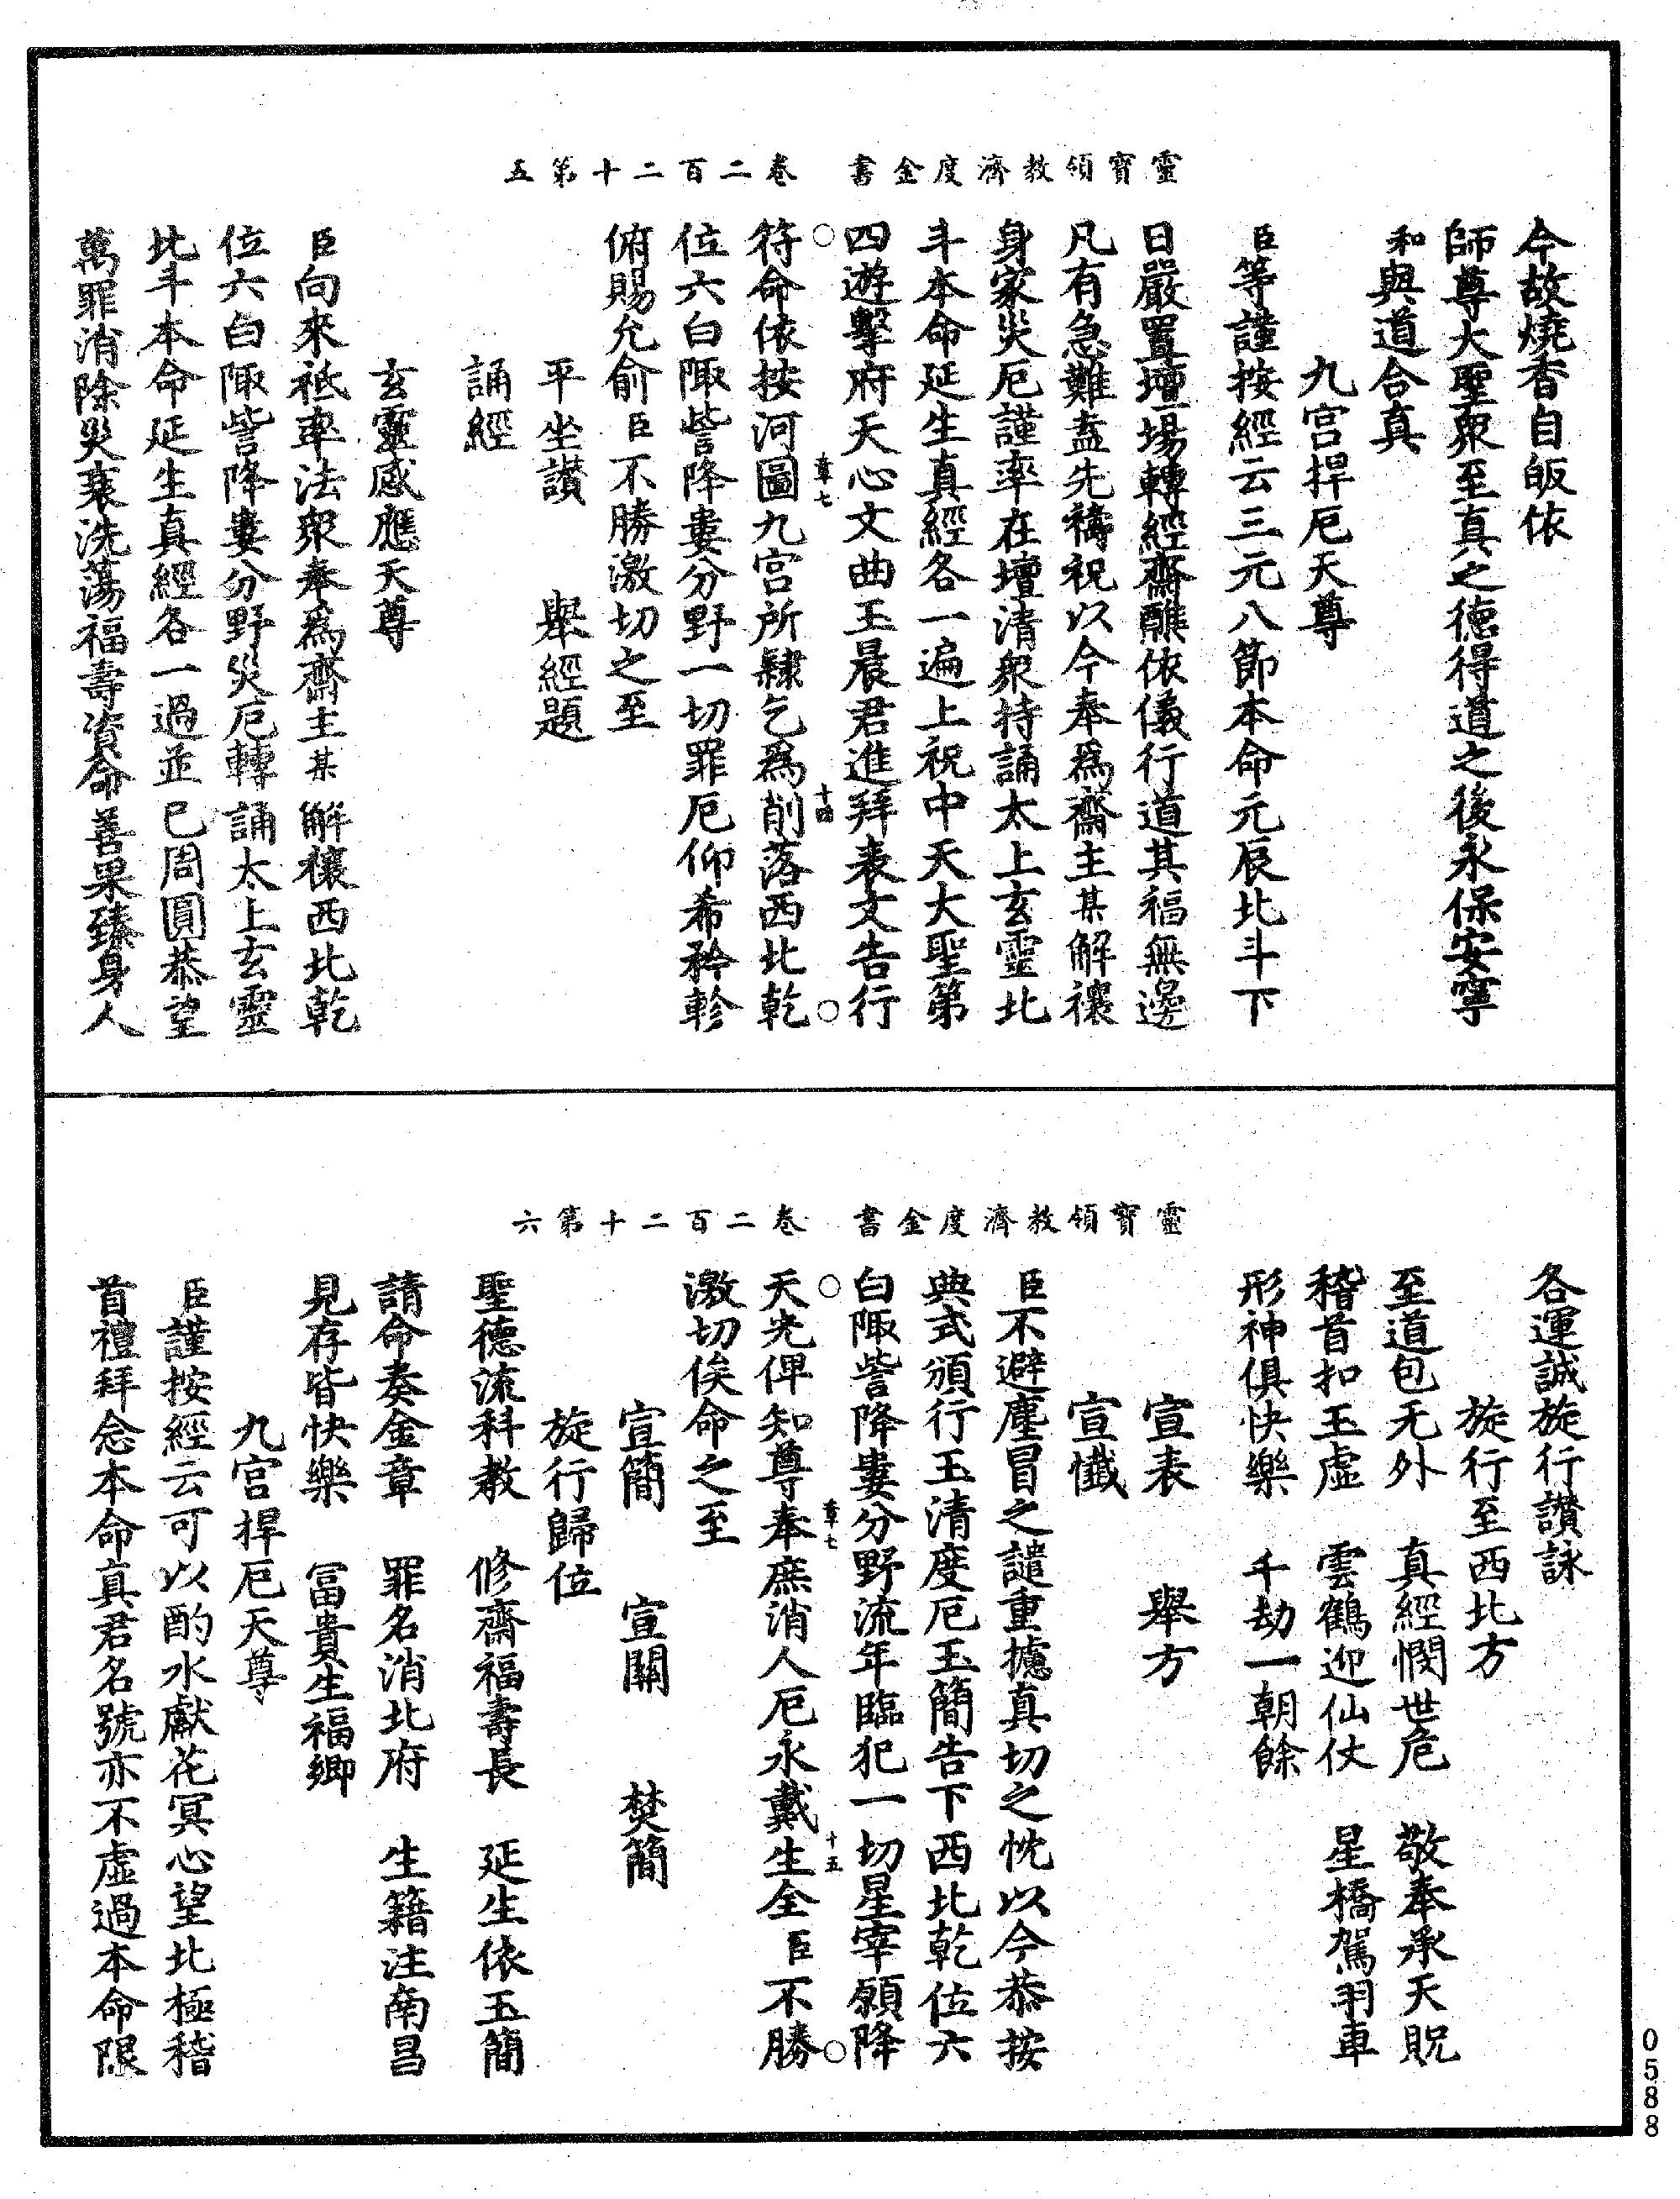 靈寶領教濟度金書　卷二百二十第五
今故燒香自皈依
師尊大聖衆至真之德得道之後永保安寧
和與道合真
九宮捍厄天尊
臣等謹按經云三元八節本命元辰北斗下
日嚴置壇場轉經齋醮依儀行道其福無邊
凡有急難盍先禱祝以今奉爲齋主某解禳
身家災厄謹率在壇清衆持誦太上玄靈北
斗本命延生真經各一遍上祝中天大聖第
四遊擊府天心文曲玉晨君進拜表文告行
章七　十四
符命依按河圖九宮所隸乞爲削落西北乾
位六白陬訾降婁分野一切罪厄仰希矜軫
俯賜允俞臣不勝激切之至
平坐讚　舉經題
誦經
玄靈感應天尊
臣向來祗率法衆奉爲齋主某解禳西北乾
位六白陬訾降婁分野災厄轉誦太上玄靈
北斗本命延生真經各一過並已周圓恭望
萬罪消除災衰洗蕩福壽資命善果臻身人
靈寶領教濟度金書　卷二百二十第六
各運誠旋行讚詠
旋行至西北方
至道包无外　真經憫世危　敬奉承天貺
稽首扣玉虛　雲鶴迎仙仗　星橋駕羽車
形神俱快樂　千劫一朝餘
宣表　舉方
宣懺
臣不避塵冒之譴重攄真切之忱以今恭按
典式頒行玉清度厄玉簡告下西北乾位六
白陬訾降婁分野流年臨犯一切星宰願降
章七　十五
天光俾知尊奉庶消人厄永戴生全臣不勝
激切俟命之至
宣簡　宣關　焚簡
旋行歸位
聖德流科教　修齋福壽長　延生依玉簡
請命奏金章　罪名消北府　生籍注南昌
見存皆快樂　冨貴生福鄉
九宮捍厄天尊
臣謹按經云可以酌水獻花冥心望北極稽
首禮拜念本命真君名號亦不虛過本命限
0588